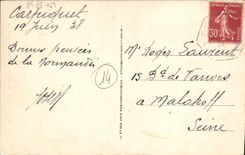 Carpiquet
19 Juin 38
Bonnes pensées
de la Normandie
14
30c
Mr Roger Laurent
15 Bd de Vanves
à Malakoff
Seine